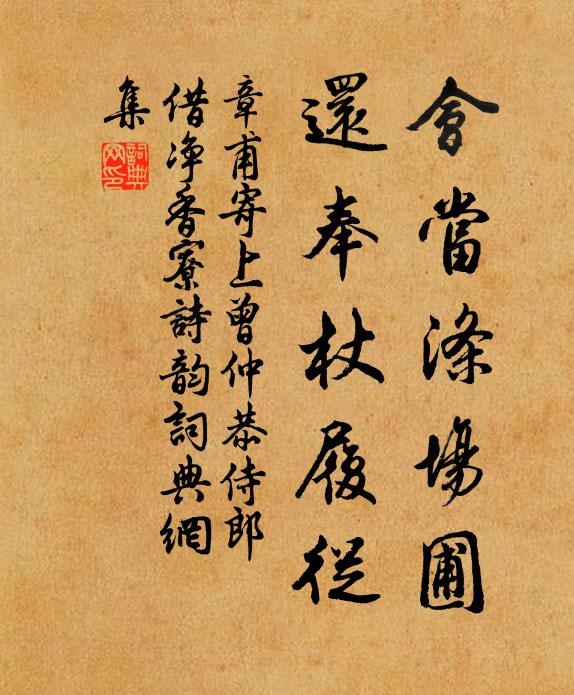 會當滌場圃
還奉杖屨從
章甫寄上曾仲恭侍郎
借净香寮詩韵詞典網
集
詞典網印